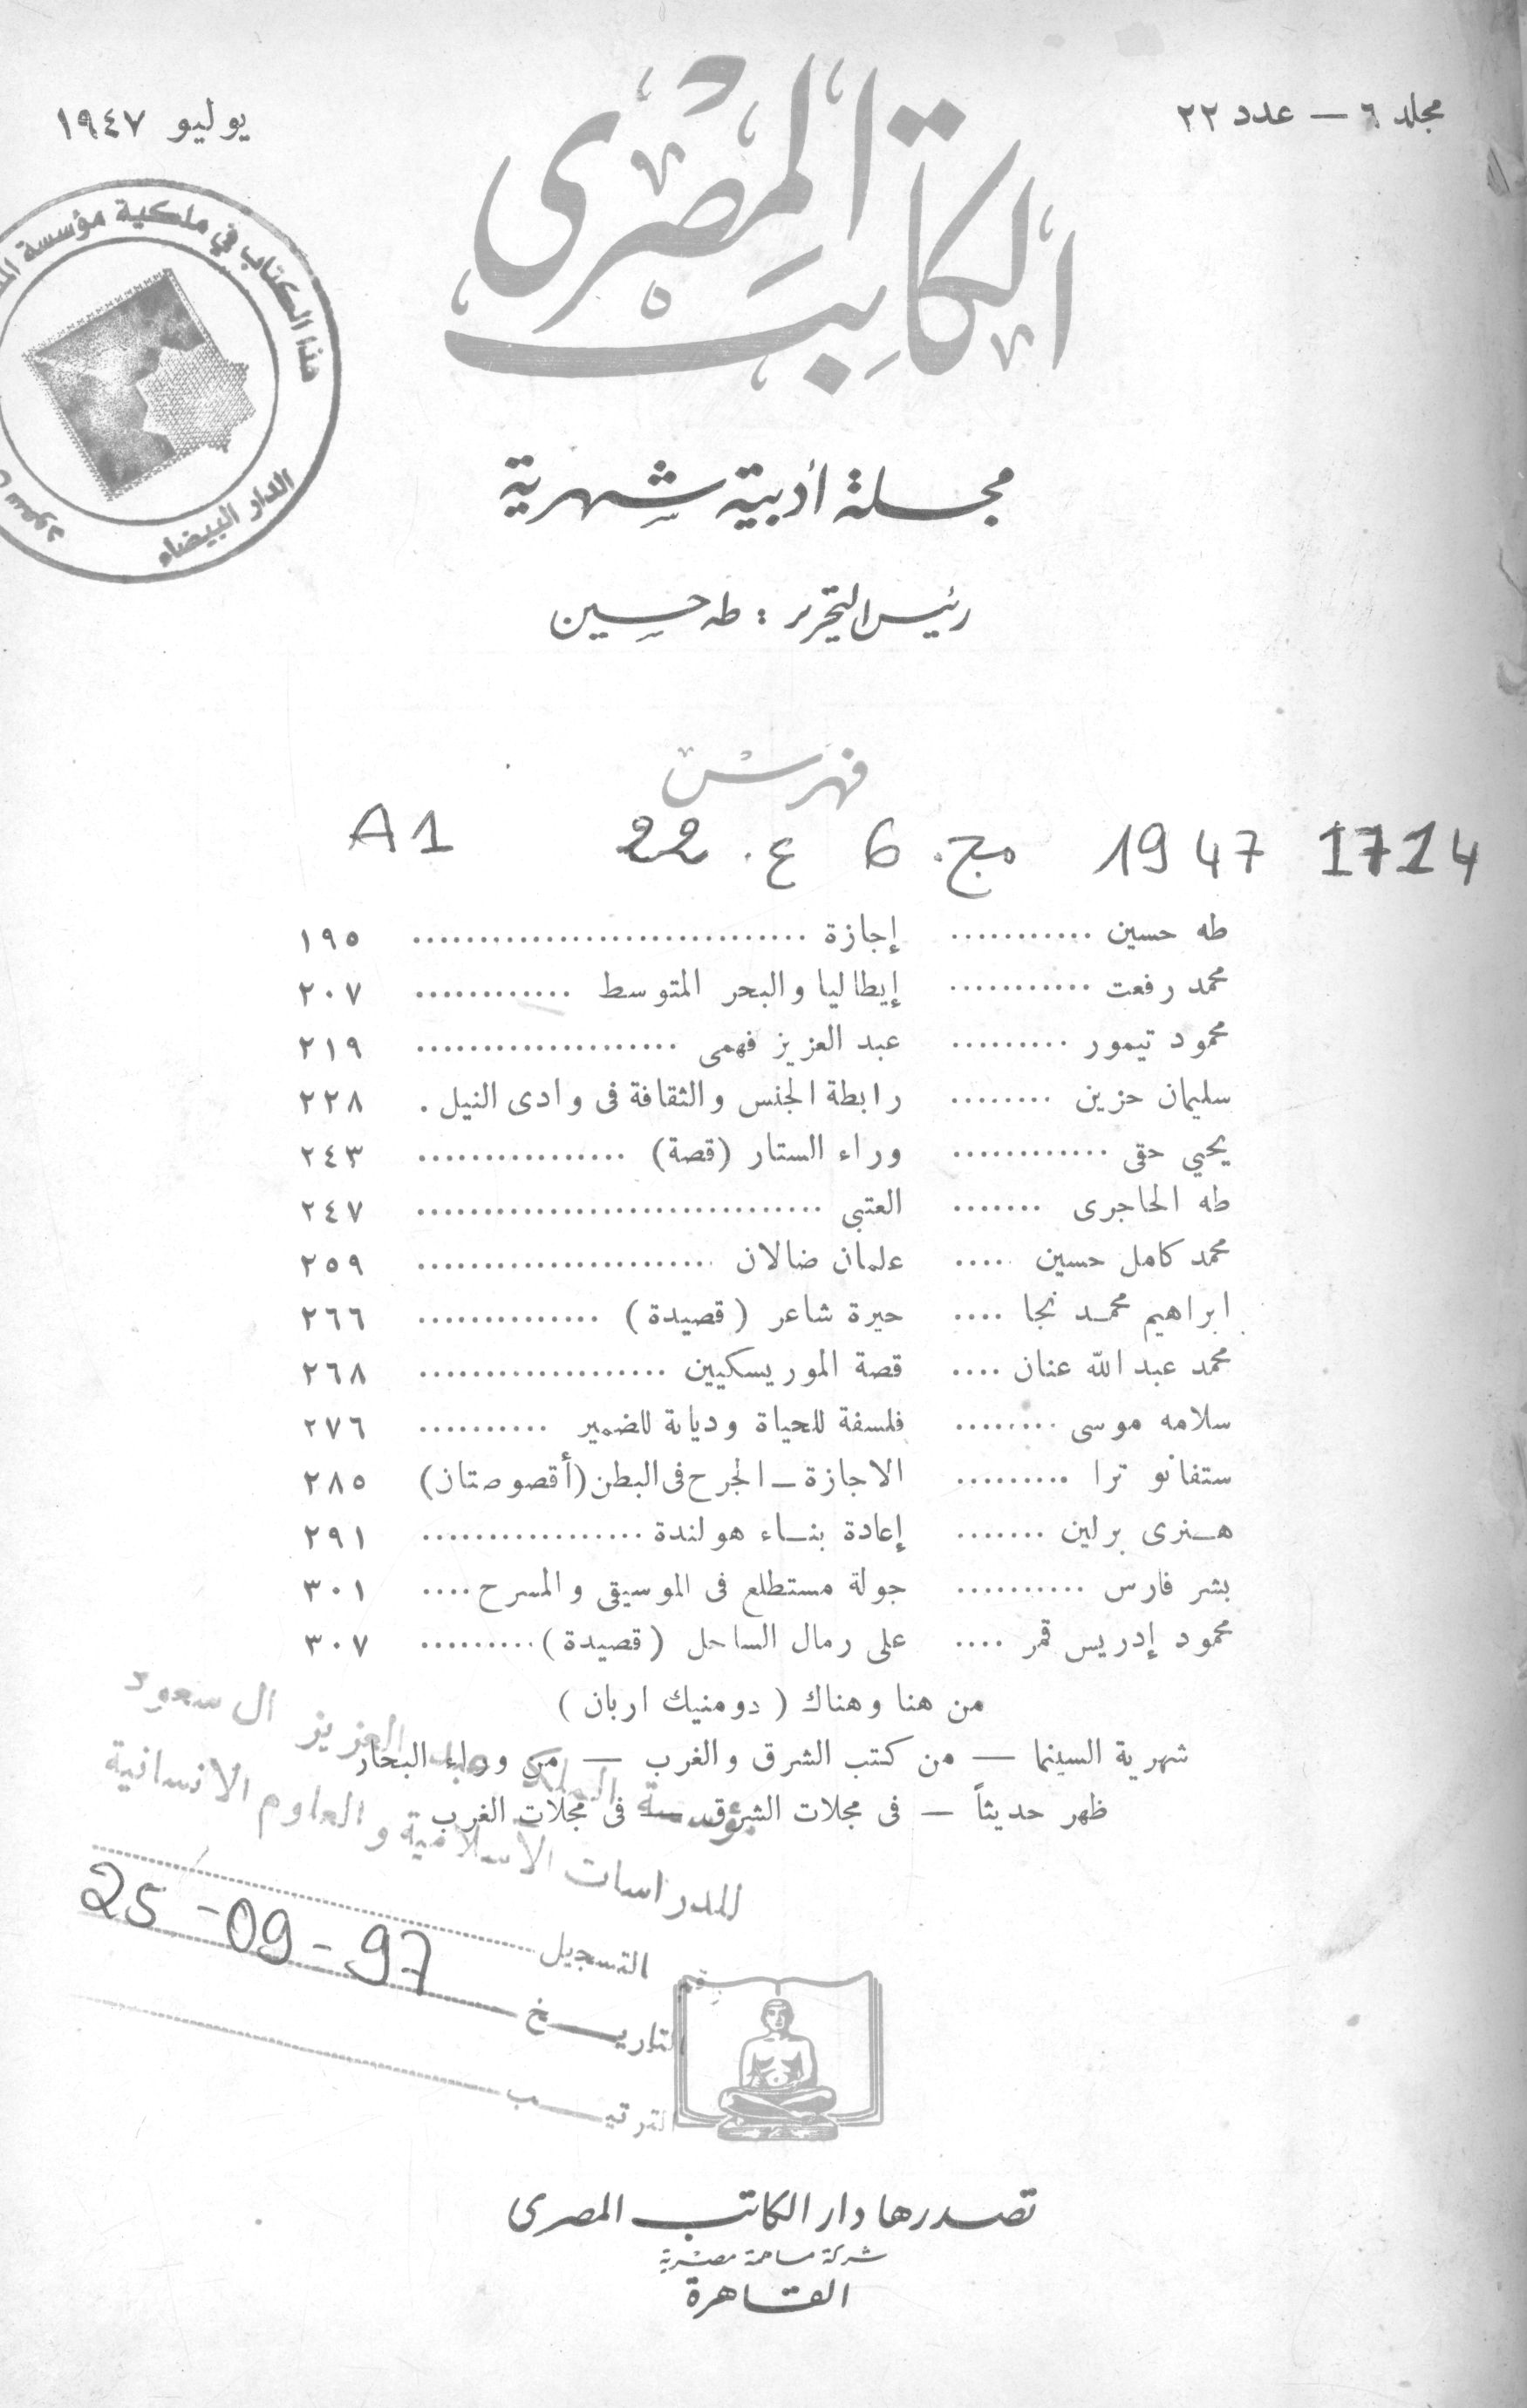 مجلد ٦ — عدد ٢٢
يوليو ١٩٤٧
الكاتب المصرى
هذا الكتاب في ملكية مؤسسة
سعود
الدار البيضاء
مجلة أدبية شهرية
رئيس التحرير : طه حسين
فهرس
A1 22 ع. 6 مج. 1947 1714
طه حسين ........... إجازة .............................. ١٩٥
محمد رفعت ........... إيطاليا والبحر المتوسط ............ ٢٠٧
محمود تيمور ......... عبد العزيز فهمى .................... ٢١٩
سليمان حزين ........ رابطة الجنس والثقافة فى وادى النيل . ٢٢٨
يحيي حقى ............ وراء الستار (قصة) ................ ٢٤٣
طه الحاجرى ....... العتبى ............................... ٢٤٧
محمد كامل حسين ..... علمان ضالان ....................... ٢٥٩
ابراهيم محمد نجا .... حيرة شاعر (قصيدة) .............. ٢٦٦
محمد عبد الله عنان .... قصة الموريسكيين ................... ٢٦٨
سلامه موسى ........ فلسفة للحياة وديانة للضمير .......... ٢٧٦
ستفانو ترا ......... الاجازة ــ الجرح فى البطن (أقصوصتان) ٢٨٥
هنرى برلين ....... إعادة بناء هولندة ................. ٢٩١
بشر فارس .......... جولة مستطلع فى الموسيقى والمسرح .... ٣٠١
محمود إدريس قمر .... على رمال الساحل (قصيدة) ......... ٣٠٧
من هنا وهناك ( دومنيك اربان )
شهرية السينما — من كتب الشرق والغرب — من وراء البحار
ظهر حديثاً — فى مجلات الشرق — فى مجلات الغرب
مؤسسة الملك عبد العزيز ال سعود
للدراسات الاسلامية والعلوم الانسانية
رقم التسجيل
التاريخ 25-09-97
الترتيب
تصدرها دار الكاتب المصرى
شركة مساهمة مصرية
القاهرة